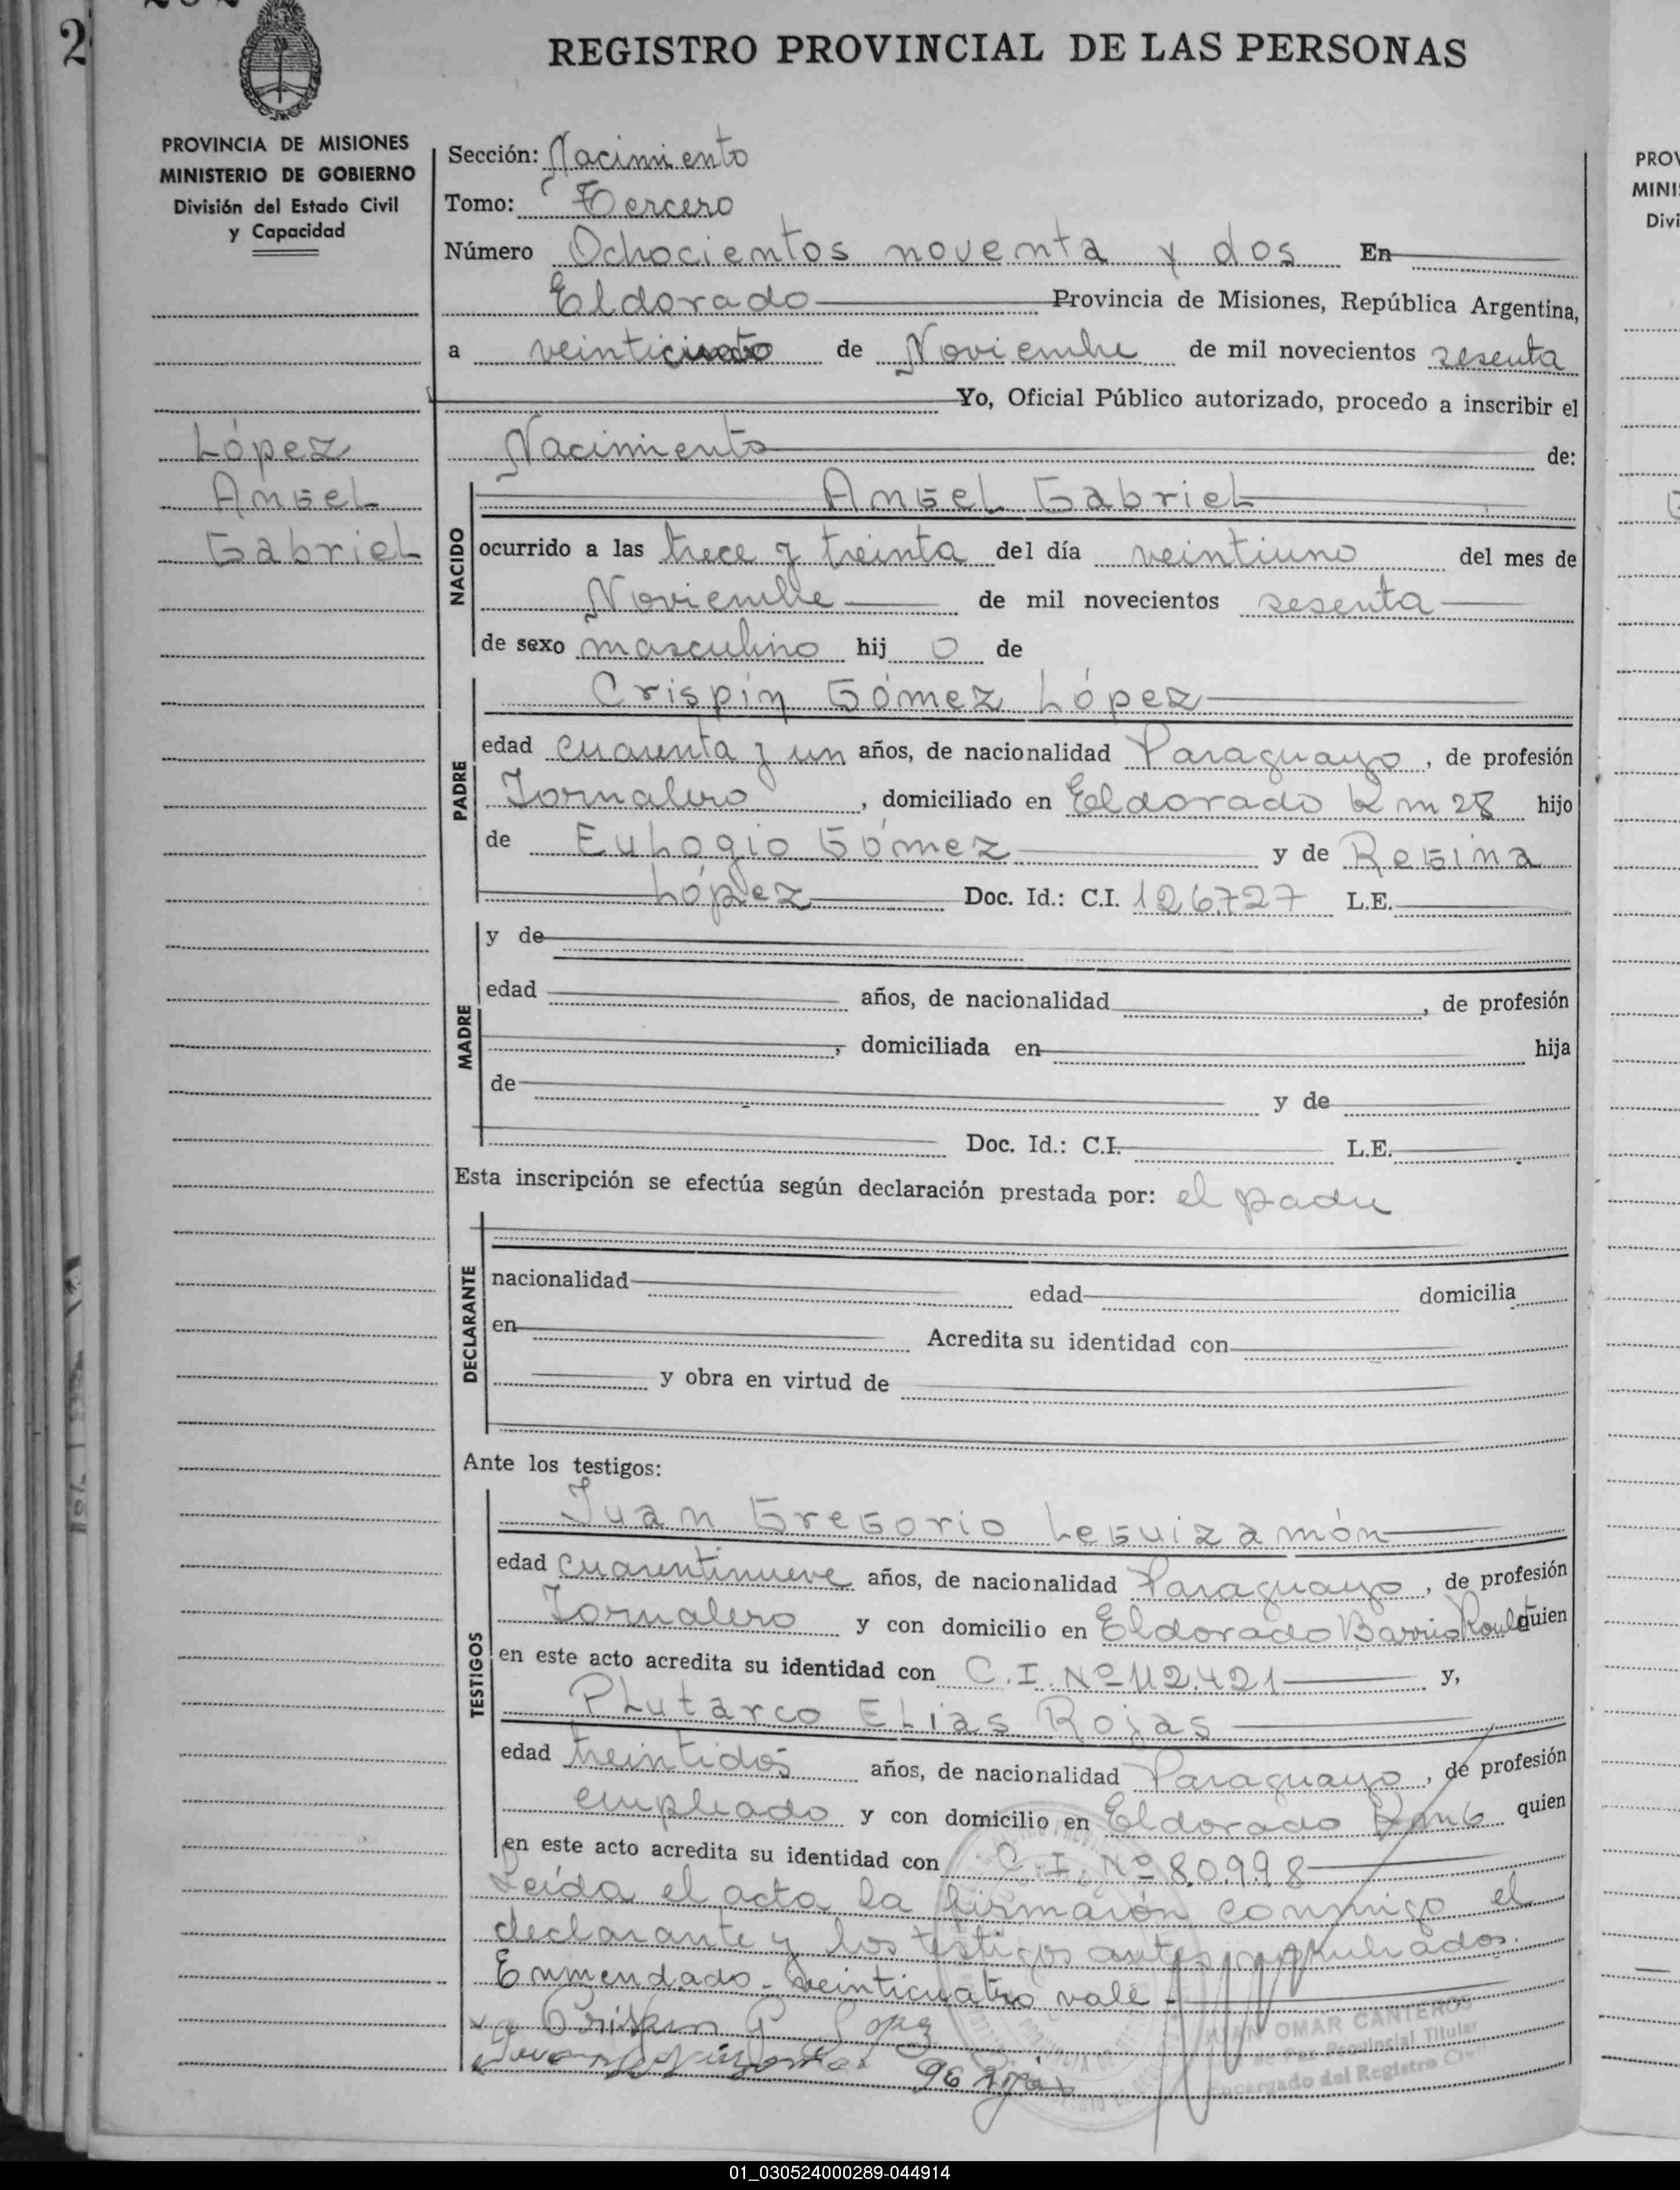 2
REGISTRO PROVINCIAL DE LAS PERSONAS
PROVINCIA DE MISIONES
MINISTERIO DE GOBIERNO
División del Estado Civil
y Capacidad
López
Angel
Gabriel
Sección: Nacimiento
Tomo: Tercero
Número Ochocientos noventa y dos En
Eldorado Provincia de Misiones, República Argentina,
a veinticuatro de Noviembre de mil novecientos sesenta
Yo, Oficial Público autorizado, procedo a inscribir el
Nacimiento de:
NACIDO
Angel Gabriel
ocurrido a las trece y treinta del día veintiuno del mes de
Noviembre de mil novecientos sesenta
de sexo masculino hij o de
PADRE
Crispín Gómez López
edad cuarenta y un años, de nacionalidad Paraguayo, de profesión
Jornalero, domiciliado en Eldorado Km 28 hijo
de Eulogio Gómez y de Regina
López Doc. Id.: C.I. 126727 L.E.
MADRE
y de
edad años, de nacionalidad, de profesión
, domiciliada en hija
de y de
Doc. Id.: C.I. L.E.
Esta inscripción se efectúa según declaración prestada por: el padre
DECLARANTE
nacionalidad edad domicilia
en Acredita su identidad con
y obra en virtud de
Ante los testigos:
TESTIGOS
Juan Gregorio Leguizamón
edad cuarentinueve años, de nacionalidad Paraguayo, de profesión
Jornalero y con domicilio en Eldorado Barrio quien
en este acto acredita su identidad con C.I. Nº 112.421 y,
Plutarco Elias Rojas
edad treintidós años, de nacionalidad Paraguayo, de profesión
empleado y con domicilio en Eldorado Km 6 quien
en este acto acredita su identidad con C.I. Nº 80.998
Leída el acta la firmarón conmigo el
declarante y los testigos antes nombrados.
Enmendado - veinticuatro vale -
Crispin G Lopez
OMAR CANTEROS
de Paz Provincial Titular
Encargado del Registro Civil
PROV
MINI
Divi
01_030524000289-044914